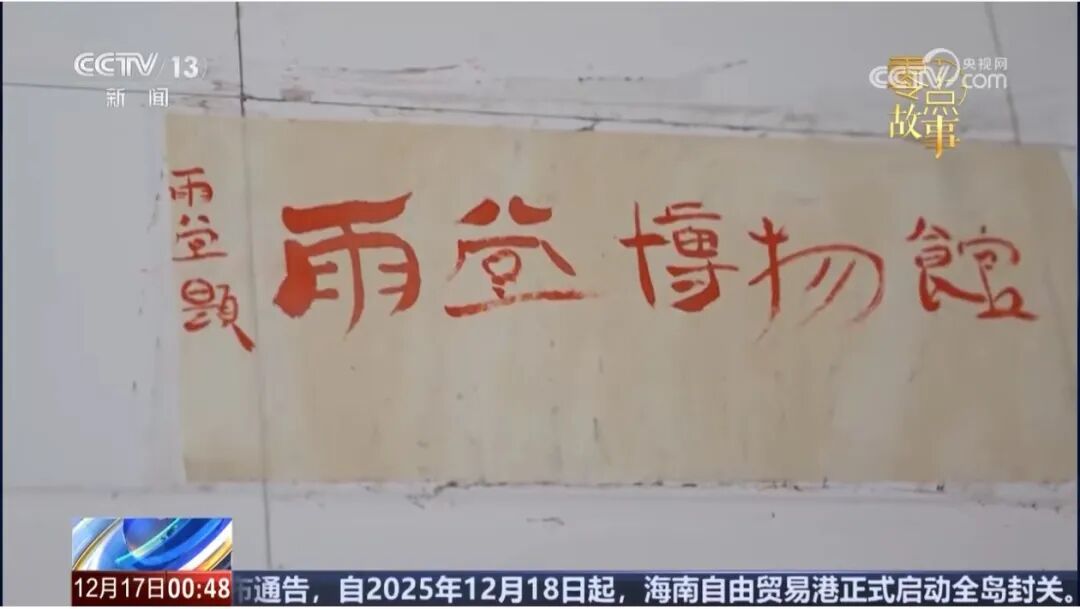 CCTV 13
新闻
央视网
CCTV.com
零点故事
雨登題
雨登博物館
12月17日00:48
布通告，自2025年12月18日起，海南自由贸易港正式启动全岛封关。